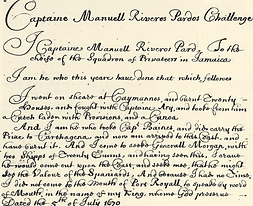 Captaine Manuell Riveres Pardos Challenge
I Captaine Manuell Riveros Pardo To the
cheife of the Squadron of Privateers in Jamaica
I am he who this yeare have done that which followes
I went on shoare at Caymannos, and burnt Twenty
Houses, and fought with Captaine Ary, and tooke from him a
Catch laden with Provisions, and a Canoa
And I am he who tooke Capt Baines, and did carry the
Prize to Carthagena, and now am arrived to this Coast, and
have burnt it. And I come to seeke Generall Morgan, with
two Shipps of Twenty Gunns, and haveing seene this, I crave
he would come out upon the Coast and seeke mee, that hee might
see the Valour of the Spaniards, And because I had no time
I did not come to the Mouth of Port Royall, to speake by word
of Mouth, in the name of my King, whome God preserve
Dated the 5th of July 1670